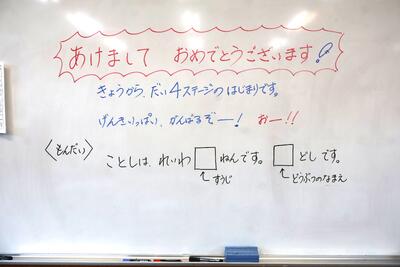 あけまして おめでとうございます!
きょうから、だい4ステージの はじまりです。
げんきいっぱい、がんばるぞー! おー!!
〈もんだい〉 ことしは、れいわ□ねんです。□どしです。
すうじ どうぶつのなまえ